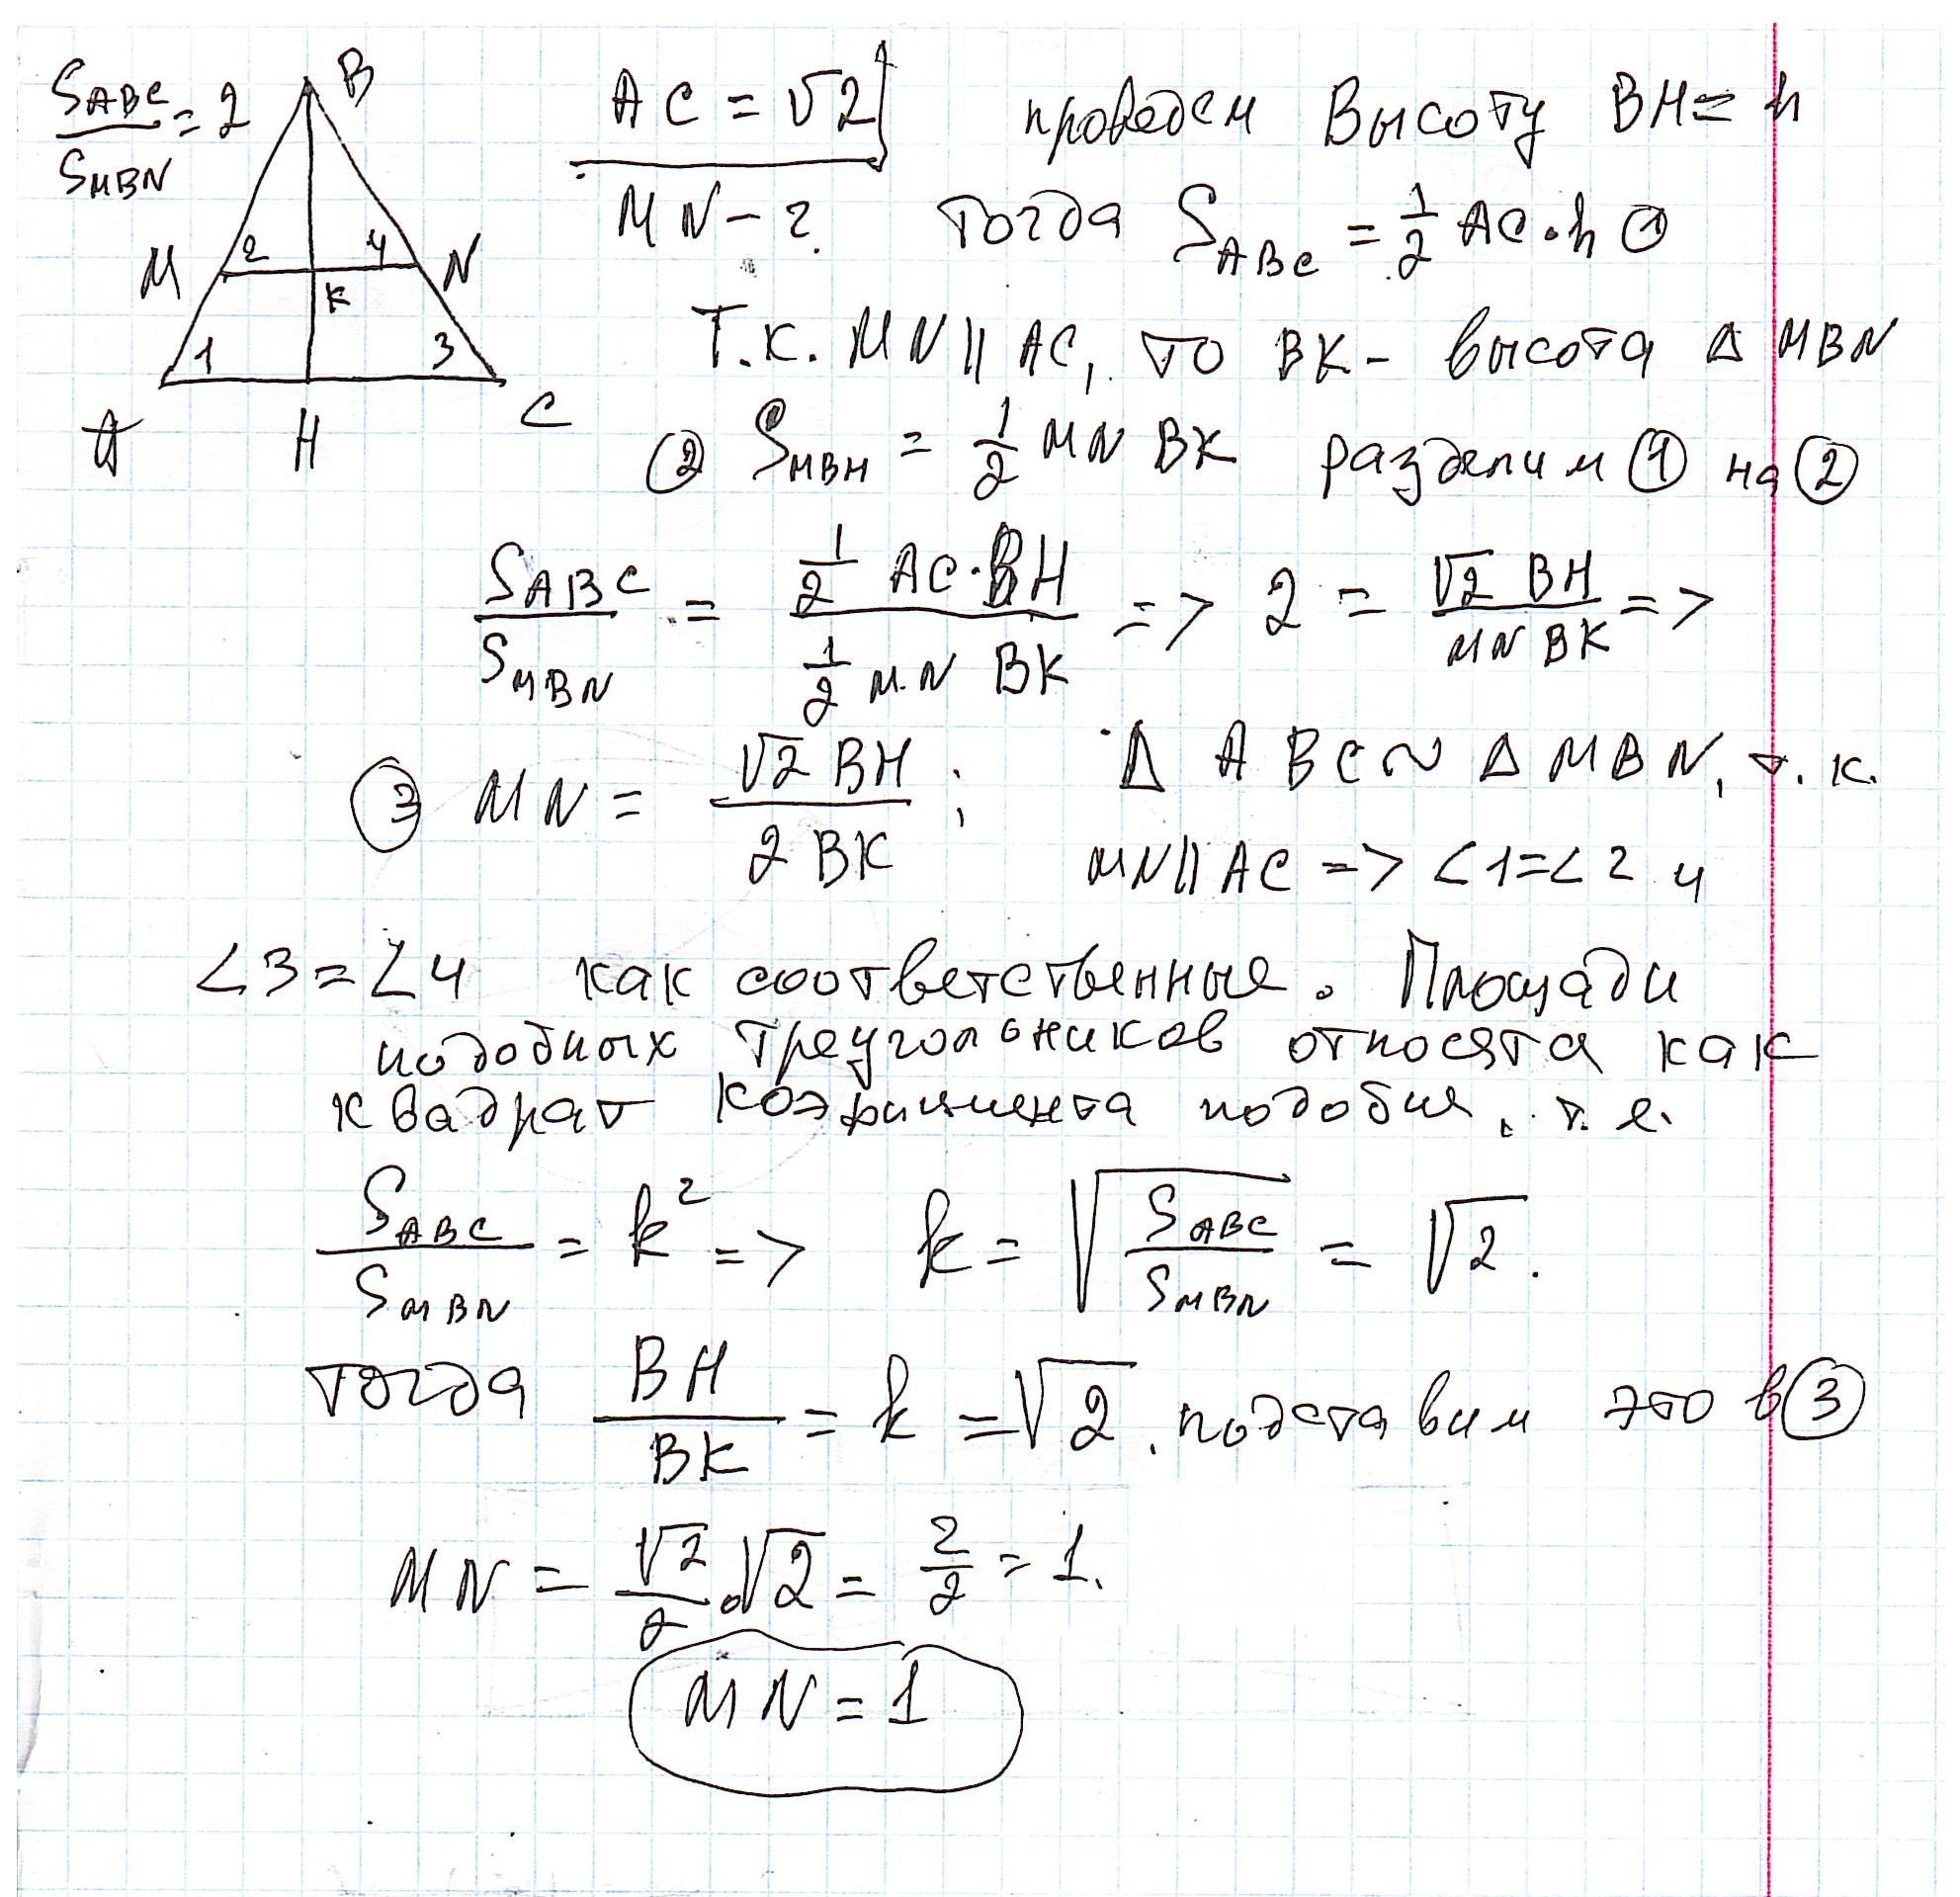 S_ABC / S_MBN = 2
B
AC = √2
проведем Высоту BH = h
MN - ?
Тогда S_ABC = 1/2 AC · h ①
M 2 4 N
K
1 3
A H C
Т.К. MN || AC, то BK - высота Δ MBN
② S_MBH = 1/2 MN BK разделим ① на ②
S_ABC / S_MBN = 1/2 AC · BH / 1/2 MN BK => 2 = √2 BH / MN BK =>
③ MN = √2 BH / 2 BK ; Δ ABC ~ Δ MBN, т.к.
MN || AC => ∠1 = ∠2 и
∠3 = ∠4 как соответственные. Площади
подобных треугольников относята как
квадрат коэфициента подобия, т.е.
S_ABC / S_MBN = k² => k = √(S_ABC / S_MBN) = √2.
тогда BH / BK = k = √2. подставим это в ③
MN = √2 / 2 · √2 = 2/2 = 1.
MN = 1